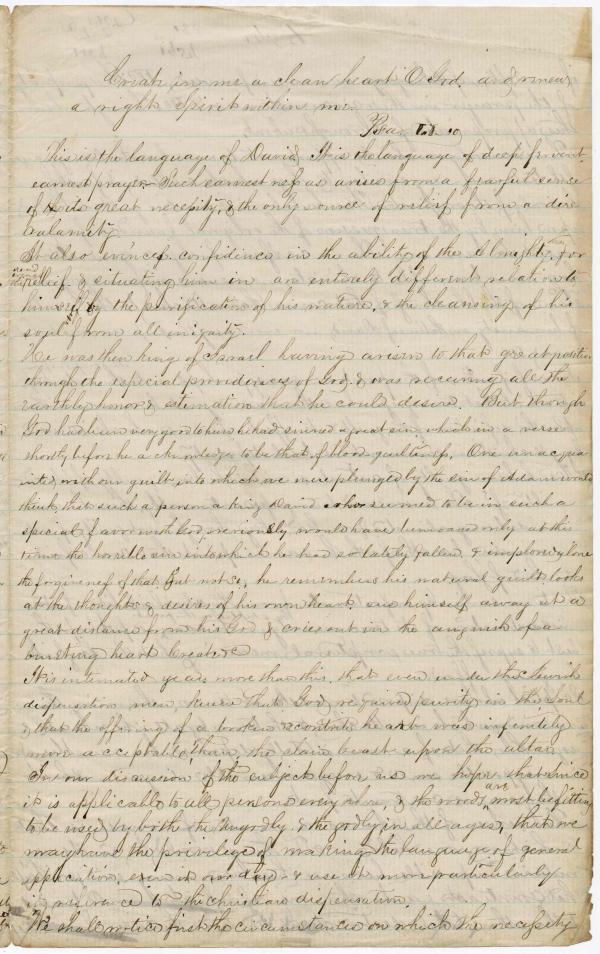 Create in me a clean heart O God, and renew
a right spirit within me.
Psa. 51. 10
This is the language of David, It is the language of deep fervent
earnest prayer. Such earnestness as arises from a fearful sense
of its great necessity, & the only source of relief from a dire
calamity.
It also evinces confidence in the ability of the Almighty, for
relief & situating him in an entirely different relation to
himself by the purification of his nature, & the cleansing of his
soul from all iniquity.
He was then king of Israel having arisen to that great position
through the especial providences of God, & was receiving all the
earthly honor & estimation that he could desire. But though
God had been very good to him he had sinned a great sin, which in a verse
shortly before he acknowledges to be that of blood guiltiness. One unacqua
inted with our guilt into which we were plunged by the sin of Adam would
think that such a person a king David who seemed to be in such a
special favor with God, previously would have bemoaned only at this
time the horrible sin into which he had so lately fallen, & implored alone
the forgiveness of that, But not so, he remembers his natural guilt looks
at the thoughts & desires of his own heart, sees himself away at a
great distance from his God & cries out in the anguish of a
bursting heart Create &c
It is intimated years more than this, that even under the Jewish
dispensation men knew that God required purity in the soul
& that the offering of a broken & contrite heart was infinitely
more acceptable, than the slain beast upon the altar.
In our discussion of the subject before us we hope that since
it is applicable to all persons everywhere, & the words are most befitting
to be used by both the ungodly & the godly in all ages, that we
may have the privilege of making the language of general
application, & use it more particularly
in reference to the christian dispensation.
We shall notice first the circumstances on which the necessity